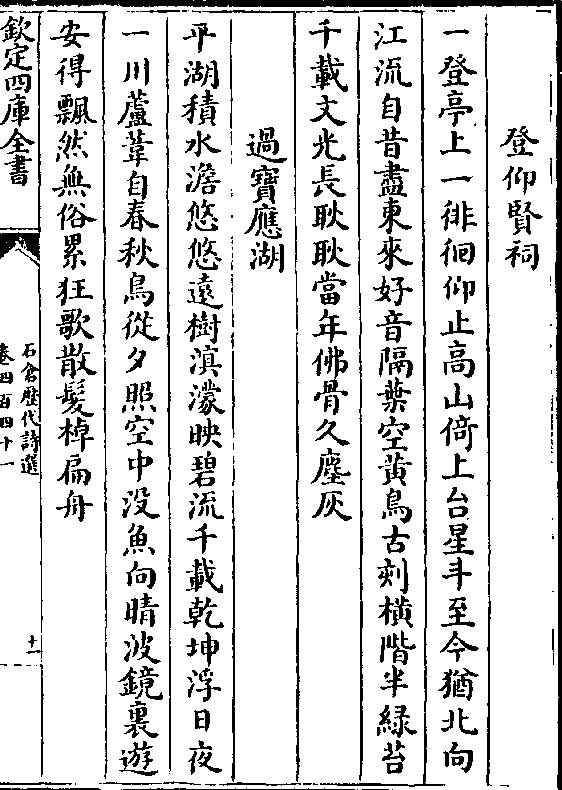 登仰賢祠
一登亭上一徘徊仰止高山倚上台星斗至今猶北向
江流自昔盡東來好音隔葉空黄鳥古剎横階半緑苔
千載文光長耿耿當年佛骨久塵灰
過寶應湖
平湖積水澹悠悠遠樹滇濛映碧流千載乾坤浮日夜
一川蘆葦自春秋鳥從夕照空中没魚向晴波鏡裏遊
安得飄然無俗累狂歌散髮棹扁舟
欽定四庫全書
石倉歴代詩選
卷四百四十一
十一